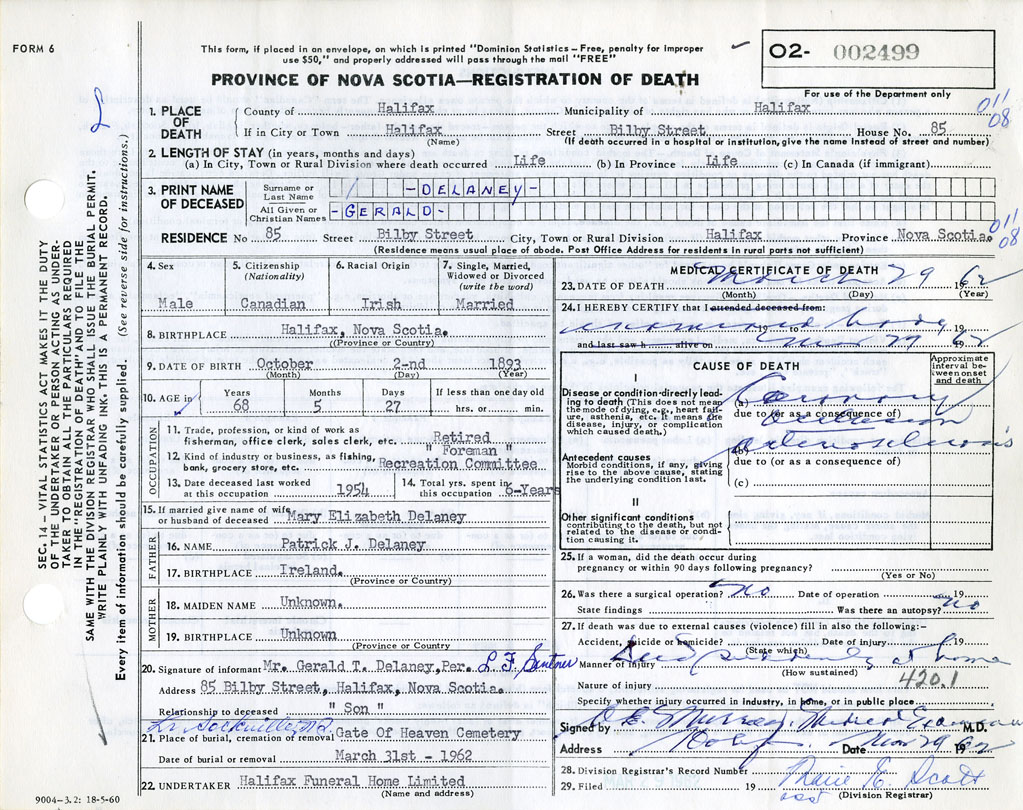 FORM 6
This form, if placed in an envelope, on which is printed "Dominion Statistics – Free, penalty for improper
use $50," and properly addressed will pass through the mail "FREE"
O2- 002499
PROVINCE OF NOVA SCOTIA—REGISTRATION OF DEATH
For use of the Department only
SEC. 14 – VITAL STATISTICS ACT MAKES IT THE DUTY
OF THE UNDERTAKER OR PERSON ACTING AS UNDER-
TAKER TO OBTAIN ALL THE PARTICULARS REQUIRED
IN THE "REGISTRATION OF DEATH" AND TO FILE THE
SAME WITH THE DIVISION REGISTRAR WHO SHALL ISSUE THE BURIAL PERMIT.
WRITE PLAINLY WITH UNFADING INK. THIS IS A PERMANENT RECORD.
Every item of information should be carefully supplied. (See reverse side for instructions.)
1. PLACE OF DEATH
County of Halifax Municipality of Halifax
011
08
If in City or Town Halifax Street Bilby Street House No. 85
(Name) (If death occurred in a hospital or institution, give the name instead of street and number)
2. LENGTH OF STAY (in years, months and days)
(a) In City, Town or Rural Division where death occurred Life (b) In Province Life (c) In Canada (if immigrant)
3. PRINT NAME OF DECEASED
Surname or Last Name - DELANEY -
All Given or Christian Names - GERALD -
011
08
RESIDENCE No 85 Street Bilby Street City, Town or Rural Division Halifax Province Nova Scotia.
(Residence means usual place of abode. Post Office Address for residents in rural parts not sufficient)
4. Sex
Male
5. Citizenship (Nationality)
Canadian
6. Racial Origin
Irish
7. Single, Married, Widowed or Divorced (write the word)
Married
8. BIRTHPLACE Halifax, Nova Scotia.
(Province or Country)
9. DATE OF BIRTH October 2-nd 1893
(Month) (Day) (Year)
10. AGE in Years 68 Months 5 Days 27 If less than one day old hrs. or min.
OCCUPATION
11. Trade, profession, or kind of work as
fisherman, office clerk, sales clerk, etc. Retired
12. Kind of industry or business, as fishing, " Foreman "
bank, grocery store, etc. Recreation Committee
13. Date deceased last worked
at this occupation 1954
14. Total yrs. spent in
this occupation 6-Years
15. If married give name of wife
or husband of deceased Mary Elizabeth Delaney
FATHER
16. NAME Patrick J. Delaney
17. BIRTHPLACE Ireland.
(Province or Country)
MOTHER
18. MAIDEN NAME Unknown.
19. BIRTHPLACE Unknown
(Province or Country)
20. Signature of informant Mr. Gerald T. Delaney, Per.
Address 85 Bilby Street, Halifax, Nova Scotia.
Relationship to deceased " Son "
21. Place of burial, cremation of removal Gate Of Heaven Cemetery
Date of burial or removal March 31st - 1962
22. UNDERTAKER Halifax Funeral Home Limited
(Name and address)
9004–3.2: 18-5-60
MEDICAL CERTIFICATE OF DEATH
23. DATE OF DEATH March 29 1962
(Month) (Day) (Year)
24. I HEREBY CERTIFY that I attended deceased from:
examined body 19 to 19
and last saw h alive on Mar 29 1962
CAUSE OF DEATH
Approximate interval between onset and death
I
Disease or condition directly leading
to death (This does not mean
the mode of dying, e.g., heart failure,
asthenia, etc. It means the
disease, injury, or complication
which caused death.)
(a) Coronary
due to (or as a consequence of)
Occlusion
Antecedent causes
Morbid conditions, if any, giving
rise to the above cause, stating
the underlying condition last.
(b) arteriosclerosis
due to (or as a consequence of)
(c)
II
Other significant conditions
contributing to the death, but not
related to the disease or condition
causing it.
25. If a woman, did the death occur during
pregnancy or within 90 days following pregnancy?
(Yes or No)
26. Was there a surgical operation? No Date of operation 19
State findings Was there an autopsy? No
27. If death was due to external causes (violence) fill in also the following:–
Accident, suicide or homicide? Date of injury 19
(State which)
Manner of injury Died suddenly at home
(How sustained)
Nature of injury 420.1
Specify whether injury occurred in industry, in home, or in public place.
Signed by Murray, Medical Examiner M.D.
Address Date Mar 29 1962
28. Division Registrar's Record Number
29. Filed 19 Marie E. Scott
(Division Registrar)